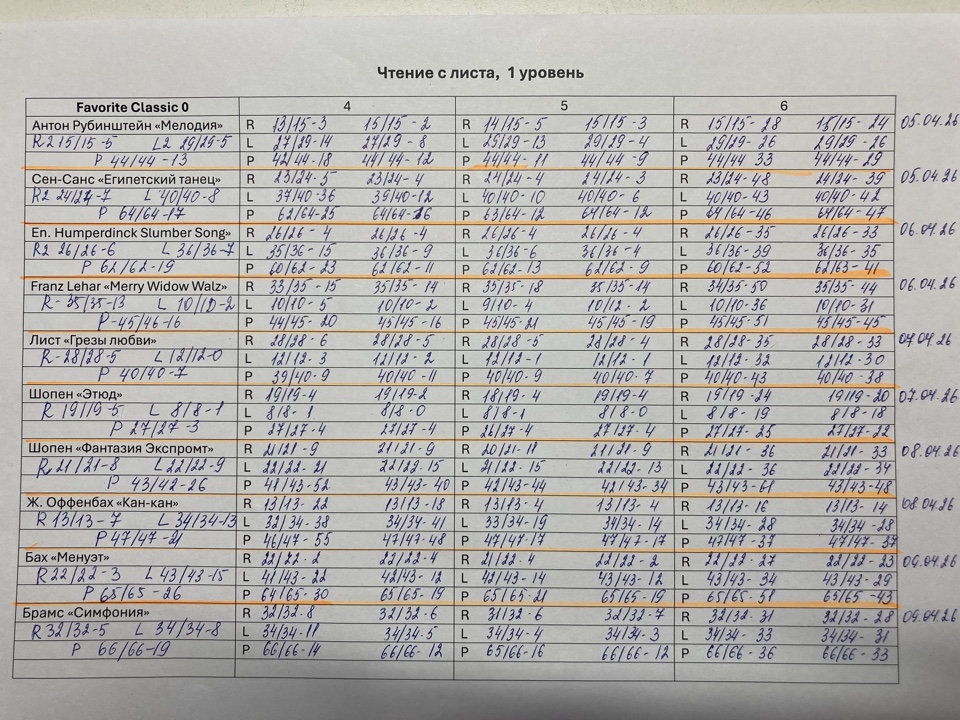 Чтение с листа, 1 уровень
Favorite Classic 0 4 5 6
Антон Рубинштейн «Мелодия» R 13/15-3 15/15-2 R 14/15-5 15/15-3 R 15/15-28 15/15-24 05.04.26
R2 15/15-5 L2 29/29-5 L 27/29-14 27/29-8 L 25/29-13 29/29-4 L 29/29-26 29/29-26
P 44/44-13 P 42/44-18 44/44-12 P 44/44-11 44/44-9 P 44/44 33 44/44-29
Сен-Санс «Египетский танец» R 23/24-5 23/24-4 R 24/24-4 24/24-3 R 23/24-48 24/24-39 05.04.26
R2 24/24-7 L 40/40-8 L 37/40-36 39/40-12 L 40/40-10 40/40-6 L 40/40-43 40/40-42
P 64/64-17 P 62/64-25 64/64-26 P 63/64-12 64/64-12 P 64/64-46 64/64-47
En. Humperdinck Slumber Song» R 26/26-4 26/26-4 R 26/26-4 26/26-4 R 26/26-35 26/26-33 06.04.26
R2 26/26-6 L 36/36-7 L 35/36-15 36/36-9 L 36/36-6 36/36-4 L 36/36-39 36/36-35
P 62/62-19 P 60/62-23 62/62-11 P 62/62-13 62/62-9 P 60/62-52 62/63-41
Franz Lehar «Merry Widow Walz» R 33/35-15 35/35-14 R 35/35-18 35/35-14 R 34/35-50 35/35-44 06.04.26
R-35/35-13 L 10/10-2 L 10/10-5 10/10-2 L 9/10-4 10/12-2 L 10/10-36 10/10-31
P-45/46-16 P 44/45-20 45/45-16 P 45/45-21 45/45-19 P 45/45-51 45/45-45
Лист «Грезы любви» R 28/28-6 28/28-5 R 28/28-5 28/28-4 R 28/28-35 28/28-33 07.04.26
R-28/28-5 L 12/12-0 L 12/12-3 12/12-2 L 12/12-1 12/12-1 L 12/12-32 12/12-30
P 40/40-7 P 39/40-9 40/40-11 P 40/40-9 40/40-7 P 40/40-43 40/40-38
Шопен «Этюд» R 19/19-4 19/19-2 R 18/19-4 19/19-4 R 19/19-24 19/19-20 07.04.26
R 19/19-5 L 8/8-1 L 8/8-1 8/8-0 L 8/8-1 8/8-0 L 8/8-19 8/8-18
P 27/27-3 P 27/27-4 27/27-4 P 26/27-4 27/27-4 P 27/27-25 27/27-22
Шопен «Фантазия Экспромт» R 21/21-9 21/21-9 R 20/21-11 21/21-9 R 21/21-36 21/21-33 08.04.26
R 21/21-8 L 22/22-9 L 22/22-21 22/22-15 L 21/22-15 22/22-13 L 22/22-36 22/22-34
P 43/42-26 P 41/43-52 43/43-40 P 42/43-44 42/43-34 P 43/43-61 43/43-48
Ж. Оффенбах «Кан-кан» R 13/13-22 13/13-18 R 13/13-4 13/13-4 R 13/13-16 13/13-14 08.04.26
R 13/13-7 L 34/34-13 L 32/34-38 34/34-41 L 33/34-19 34/34-14 L 34/34-28 34/34-28
P 47/47-21 P 46/47-55 47/47-48 P 47/47-17 47/47-17 P 47/47-37 47/47-37
Бах «Менуэт» R 22/22-2 22/22-4 R 21/22-4 22/22-2 R 22/22-27 22/22-23 09.04.26
R 22/22-3 L 43/43-15 L 41/43-22 42/43-12 L 42/43-14 43/43-12 L 43/43-34 43/43-29
P 65/65-26 P 64/65-30 65/65-19 P 65/65-21 65/65-19 P 65/65-51 65/65-43
Брамс «Симфония» R 32/32-8 32/32-6 R 31/32-6 32/32-7 R 32/32-31 32/32-28 09.04.26
R 32/32-5 L 34/34-8 L 34/34-11 34/34-5 L 34/34-4 34/34-3 L 34/34-33 34/34-31
P 66/66-19 P 66/66-14 66/66-12 P 65/66-16 66/66-12 P 66/66-36 66/66-33